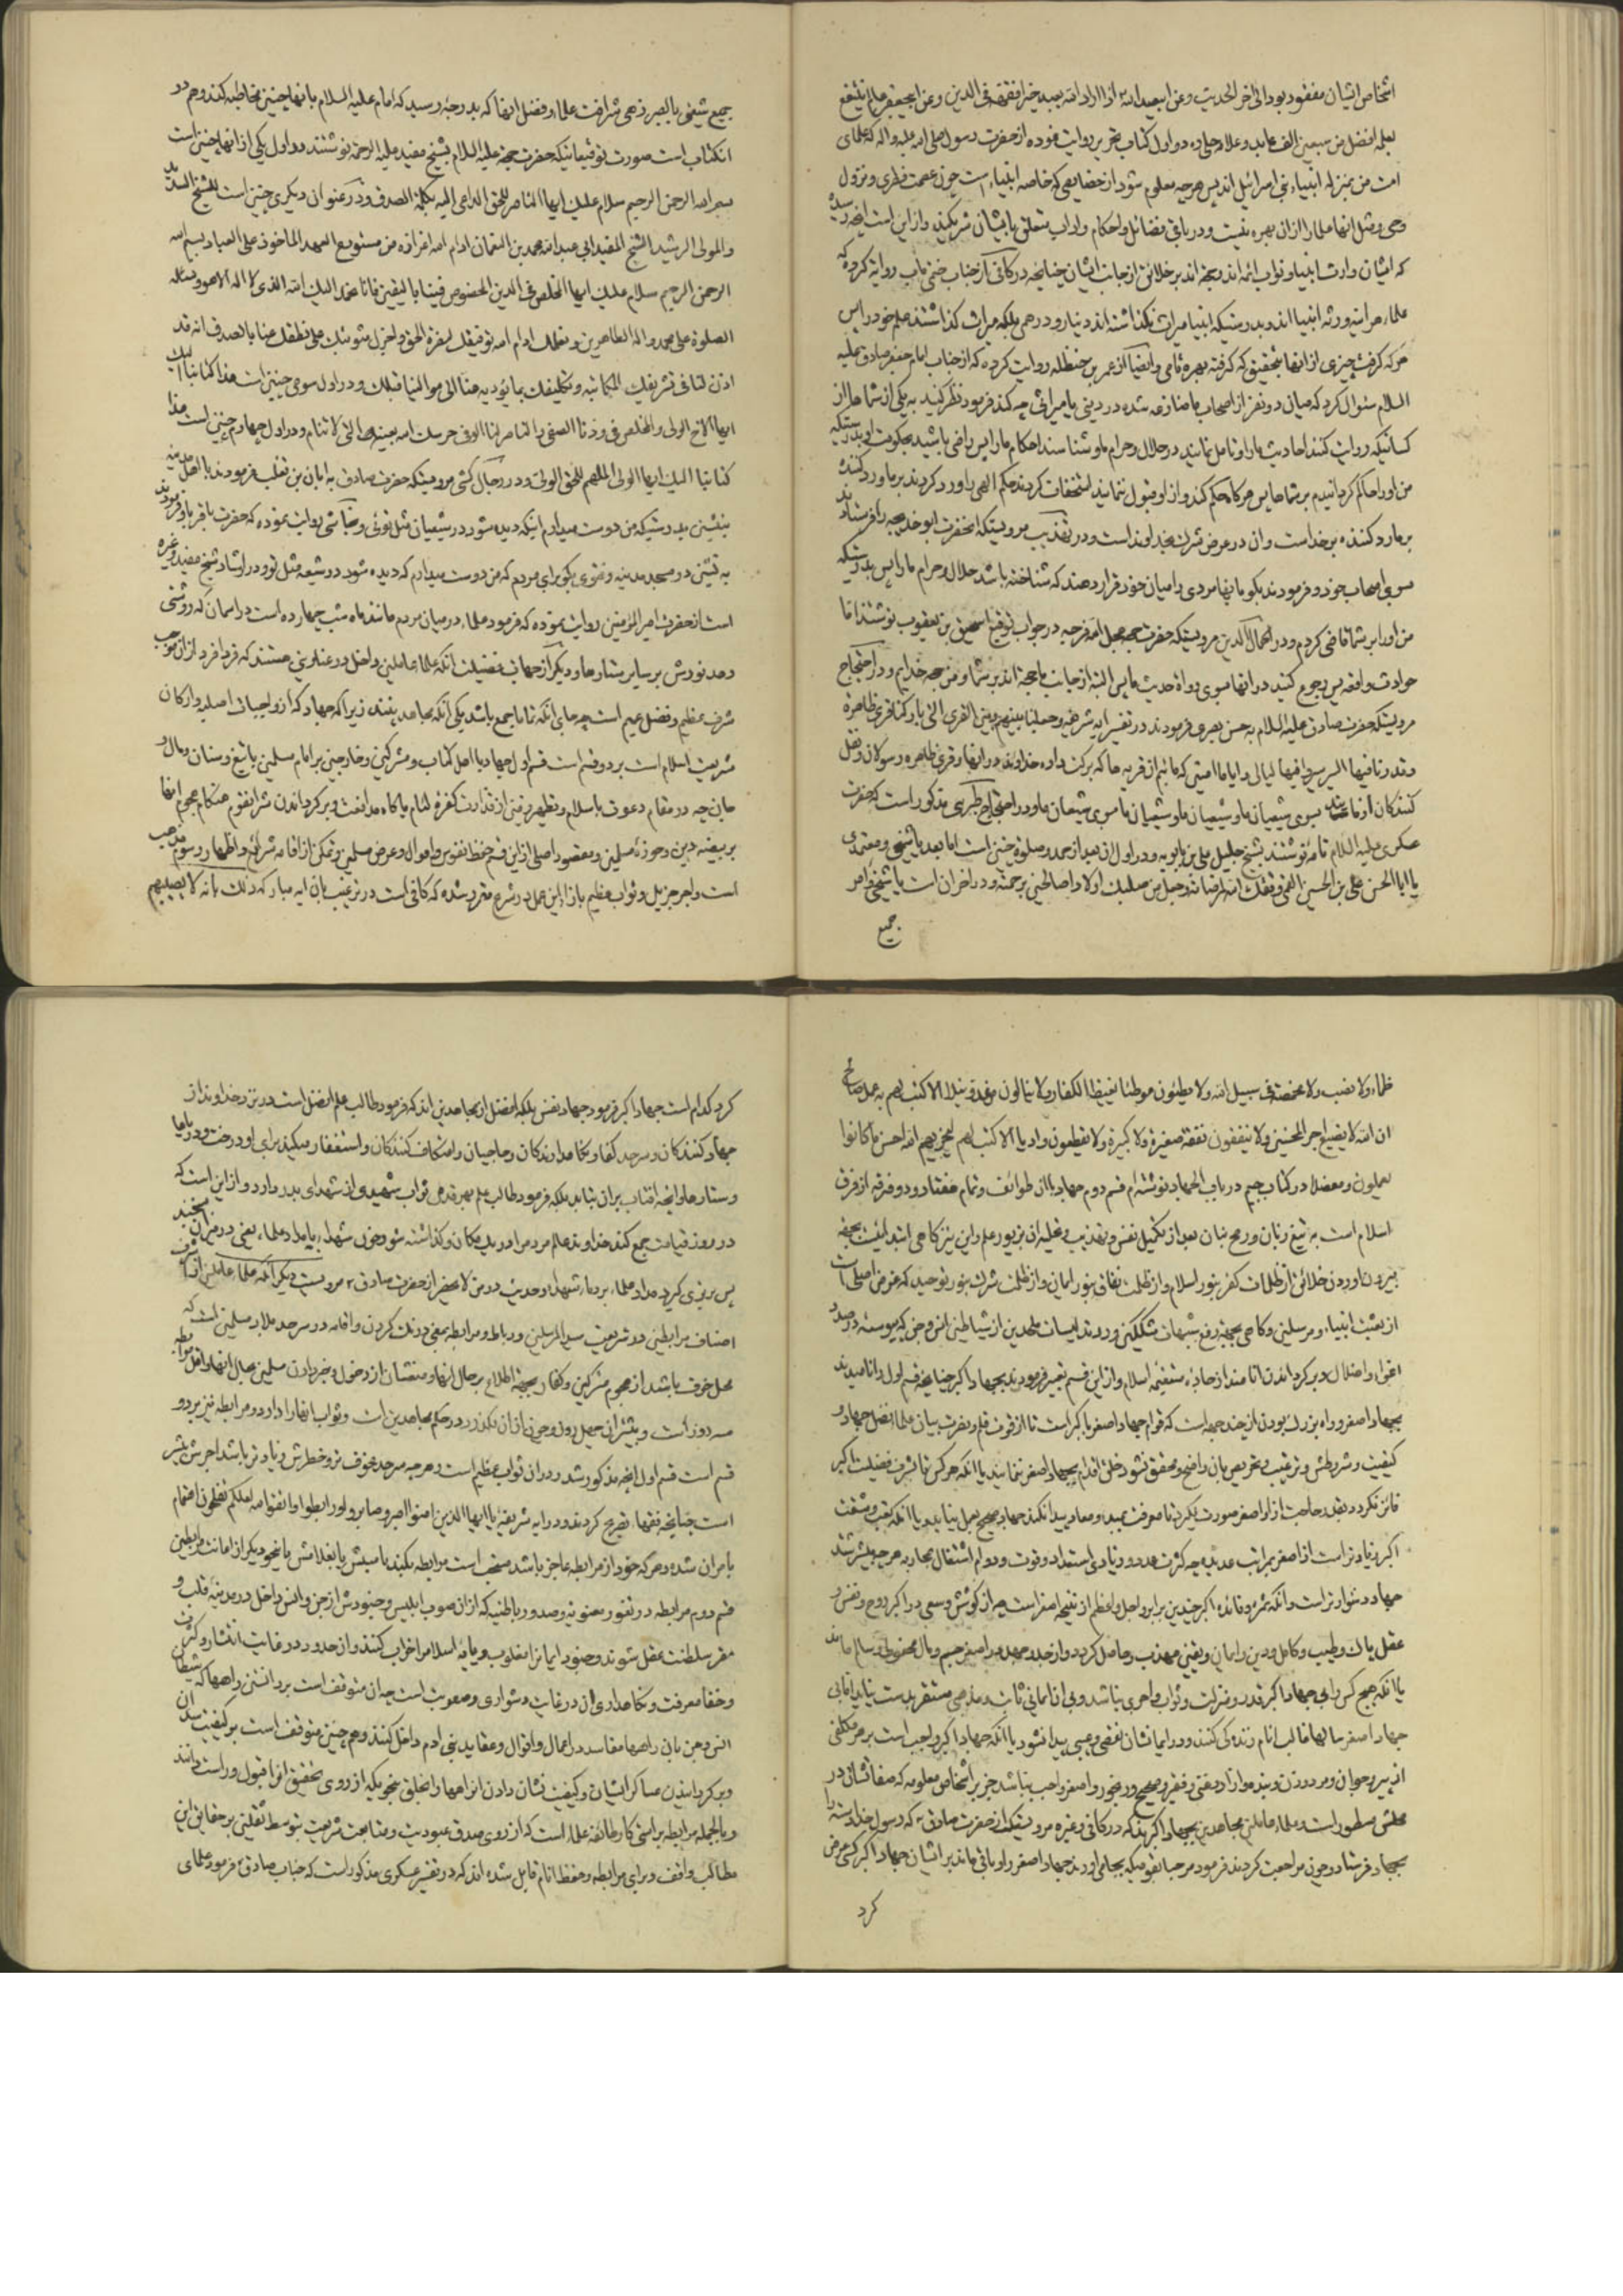 اشخاص ایشان مفقود بود الی اخر الحدیث وعن ابیعبدالله اذا اراد الله بعبد خیرا فقهه فی الدین وعن ابیجعفر عالم ینتفع
بعلمه افضل من سبعین الف عابد وعلامه حلی ره در اول کتاب تحریر روایت نموده از حضرت رسول صلی الله علیه واله که علمای
امت من بمنزله انبیاء بنی اسرائیل اند پس هرچه معلوم شود از خصایصی که خاصه انبیاء است چون عصمت فطری ونزول
وحی ومثل انها علما را از ان بهره نیست ودر باقی فضائل واحکام واداب متعلق بایشان شریکند واز این است انچه رسیده
که ایشان وارث انبیا ونواب ائمه اند وحجه اند بر خلائق از جانب ایشان چنانچه در کافی از جناب ختمی ماب روایة کرده که
علماء هراینه ورثه انبیا اند وبدرستیکه انبیا میراث نکذاشته اند دینار ودرهمی بلکه میراث کذاشتند علم خود را پس
هرکه کرفت چیزی از انها بتحقیق که کرفته بهره تامی وایضا از عمر بن حنظله روایت کرده که از جناب امام جعفر صادق علیه
السلام سئوال کرد که میان دو نفر از اصحاب ما منازعه شده در دینی یا میراثی چه کند فرمود نظر کنید به یکی از شماها از
کسانیکه روایت کنند احادیث ما را وتامل نمایند در حلال وحرام ما وشناسند احکام ما را پس راضی باشید بحکومت او بدرستیکه
من او را حاکم کردانیدم بر شماها پس هرکاه حکم کند واز او قبول ننمایند استخفاف کردند حکم الهی را ورد کردند بر ما ورد کننده
بر ما رد کننده بر خداست وان در عرض شرک بخداوند است ودر تهذیب مرویستکه انحضرت ابوخدیجه را فرستاد
بسوی اصحاب خود وفرمودند بکو ما بانها مردی را میان خود قرار دهند که شناخته باشد حلال وحرام ما را پس بدرستیکه
من او را بر شما قاضی کردم ودر اکمال الدین مرویستکه حضرت حجه عجل الله فرجه در جواب توقیع اسحق بن یعقوب نوشتند اما
حوادث واقعه پس رجوع کنید در انها بسوی رواة حدیث ما پس البته از جانب ما حجه اند بر شما ومن حجه خدایم ودر احتجاج
مرویستکه حضرت صادق علیه السلام به حسن بصری فرمودند در تفسیر ایه شریفه وجعلنا بینهم وبین القری التی بارکنا قری ظاهرة
وقدرنا فیها السیر سیروا فیها لیالی وایاما امنین که مائیم از قریه ها که برکت داده خداوند در انها وقری ظاهره رسولان ونقل
کنندکان از ما باشند بسوی شیعیان ما وشیعیان ما وشیعیان ما بسوی شیعیان ما ودر احتجاج طبرسی مذکور است که حضرت
عسکری علیه السلام نامه نوشتند بشیخ جلیل علی بن بابویه ودر اول ان بعد از حمد وصلوة چنین است اما بعد یا شیخی ومعتمدی
یا ابا الحسن علی بن الحسین القمی وفقک الله لمرضاته وجعل من صلبک اولادا صالحین برحمته ودر اخر ان است یا شیخی وامر
جمیع
جمیع شیعتی بالصبر زهی شرافت علما وفضل انها که بدرجه رسید که امام علیه السلام بانها چنین مخاطبه کند وهم در
انکتاب است صورت توقیعاتیکه حضرت حجة علیه السلام بشیخ مفید علیه الرحمة نوشتند در اول یکی از انها چنین است
بسم الله الرحمن الرحیم سلام علیک ایها الناصر للحق الداعی الیه بکلمة الصدق ودر عنوان دیکری چنین است للشیخ السدید
والمولی الرشید الشیخ المفید ابی عبدالله محمد بن النعمان ادام الله اعزازه من مستودع العهد الماخوذ علی العباد بسم الله
الرحمن الرحیم سلام علیک ایها المخلص فی الدین المخصوص فینا بالیقین فانا نحمد الیک الله الذی لا اله الا هو ونساله
الصلوة علی محمد واله الطاهرین ونعلمک ادام الله توفیقک لنصرة الحق واجزل مثوبتک علی نطقک عنا بالصدق انه قد
اذن لنا فی تشریفک بالمکاتبه وتکلیفک بما تؤدیه عنا الی موالینا قبلک ودر اول سومی چنین است هذا کتابنا الیک
ایها الاخ الولی والمخلص فی ودنا الصفی والناصر لنا الوفی حرسک الله بعینه التی لا تنام ودر اول چهارم چنین است هذا
کتابنا الیک ایها الولی الملهم للحق الولی ودر رجال کشی مرویستکه حضرت صادق به ابان بن تغلب فرمودند با اهل مدینه
بنشین بدرستیکه من دوست میدارم اینکه دیده شود در شیعیان مثل توئی ونجاشی روایت نموده که حضرت باقر باو فرمودند
به نشین در مسجد مدینه وفتوی بکو برای مردم که من دوست میدارم که دیده شود در شیعه مثل تو ودر ارشاد شیخ مفید وغیره
است از حضرت امیر المؤمنین روایت نموده که فرمود علماء در میان مردم مانند ماه شب چهارده است در اسمان که روشنی
دهد نورش بر سایر ستارها ودیکر از جهات فضیلت انکه علما عاملین داخل در عناوینی هستند که فرد فرد از ان موجب
شرف عظیم وفضل عمیم است چه جای انکه تماما جمع باشد یکی انکه مجاهدینند زیرا که جهاد که از واجبات اصلیه وارکان
شریعت اسلام است بر دو قسم است قسم اول جهاد با اهل کتاب ومشرکین وخارجین بر امام مسلمین با تیغ وسنان ومال و
جان چه در مقام دعوت باسلام وتطهیر زمین از قذارت کفره لئام یا کاه مدافعت وبرکرداندن شر انقوم هنکام هجوم انها
بر بیضه دین وحوزه مسلمین ومقصود اصلی از این قسم حفظ نفوس واموال وعرض مسلمین وتمکن از اقامه شرائع واظهار رسوم مذهب
است واجر جزیل وثواب عظیم بازا این عمل در شرع مقرر شده که کافی است در ترغیب بان ایه مبارکه ذلک بانه لا یصیبهم
ظماء ولا نصب ولا مخمصة فی سبیل الله ولا یطئون موطئا یغیظ الکفار ولا ینالون من عدو نیلا الا کتب لهم به عمل صالح
ان الله لا یضیع اجر المحسنین ولا ینفقون نفقة صغیرة ولا کبیرة ولا یقطعون وادیا الا کتب لهم لیجزیهم الله احسن ما کانوا
یعملون ومفصلا در کتاب جیم در باب الجهاد نوشته ام قسم دوم جهاد با ان طوائف وتمام هفتاد ودو فرقه از فرق
اسلام است به تیغ زبان ورمح بنان بعد از تکمیل نفس وتهذیب وتحلیه ان بزیور علم واین نیز کاهی ابتدائیست بجهه
بیرون اوردن خلائق از ظلمات کفر بنور اسلام واز ظلمت نفاق بنور ایمان واز ظلمت شرک بنور توحید که غرض اصلی است
از بعثت انبیاء ومرسلین وکاهی بجهة رفع شبهات مشککین ورد تدلیسات ملحدین از شیاطین انس وجن که پیوسته در صدد
اغوا واضلال وبرکرداندن انامند از جاده مستقیمه اسلام واز این قسم تعبیر فرمودند بجهاد اکبر چنانچه قسم اول را نامیدند
بجهاد اصغر وراه بزرک بودن از چند جهه است که قوام جهاد اصغر باکبر است تا از قوت قلم ونصرت بیان علما فضل جهاد و
کیفیت وشروطش وترغیب وتحریص بان واضح ومحقق نشود خلق اقدام بجهاد اصغر ننمایند یا انکه هرکس تا بشرف فضیلت اکبر
فائز نکردد بقدر حاجت از او اصغر صورت نکیرد تا معرفت بمبدء ومعاد پیدا نکند جهاد صحیح بعمل نیاید یا انکه تعب ومشقت
اکبر زیادتر است از اصغر بمراتب عدیده چه کثرت عدو وزیادتی استعداد وقوت ودوام اشتغال بمحاربه هرچه بیشتر شد
جهاد دشوارتر است وانکه ثمره وفائده اکبر چندین برابر واجل واعظم از نتیجه اصغر است چه از کوشش وسعی در اکبر روح ونفس و
عقل پاک وطیب وکامل ودین وایمان ویقین مهذب وحاصل کردد واز جد وجهد در اصغر جسم ومال محفوظ وسالم ماند
یا انکه هیچ کس را بی جهاد اکبر قدر ومنزلت وثواب واجری نباشد وبی ان ایمانی ثابت ومذهبی مستقر بدست نیاید اما بی
جهاد اصغر سالها غالب انام زنده کی کنند ودر ایمانشان نقصی وعیبی پیدا نشود یا انکه جهاد اکبر واجب است بر هر مکلفی
از پیر وجوان ومرد وزن وبنده وازاد وغنی وفقیر وصحیح ورنجور واصغر واجب نباشد جز بر اشخاص معلومه که صفاتشان در
محلش مسطور است وعلماء عاملین مجاهدین بجهاد اکبرند که در کافی وغیره مرویستکه از حضرت صادق که رسول خدا دسته را
بجهاد فرستاد وچون مراجعت کردند فرمود مرحبا بقومیکه بجا می اورند جهاد اصغر را وباقی ماند بر ایشان جهاد اکبر کسی عرض
کرد
کرد کدام است جهاد اکبر فرمود جهاد نفس بلکه افضل از مجاهدین اند که فرمود طالب علم افضل است در نزد خداوند از
جهاد کنندکان وسرحد کفار ونکاهدارندکان وحاجیان واعتکاف کنندکان واستغفار میکند برای او درخت ودریاها
وستارها وانچه افتاب بر ان بتابد بلکه فرمود طالب علم بهر قدمی ثواب شهیدی از شهدای بدر دارد واز این است که
در روز قیامت جمع کند خداوند عالم مردم را در یک مکان وکذاشته شود خون شهداء با مداد علماء یعنی در میزان بسنجند
پس برتری کیرد مداد علماء بر دماء شهداء وحدیث در من لا یحضر از حضرت صادق مرویست دیکر انکه علماء عاملین از اشرف
اصناف مرابطین در شریعت سید المرسلین ورباط ومرابطه بمعنی درنک کردن واقامه در سرحد بلاد مسلمین است که
محل خوف باشد از هجوم مشرکین وکفار بجهة اطلاع بر حال انها ومنعشان از دخول وخبر دادن مسلمین بحال انها واقل مرابطه
سه روز است وبیشتر ان چهل روز وچون از ان بکذرد در حکم مجاهدین است وثواب انها را دارد ومرابطه نیز بر دو
قسم است قسم اول انچه مذکور شد ودر ان ثواب عظیم است وهرچه سرحد مخوف تر وخطرش زیادتر باشد اجرش بیشتر
است چنانچه فقها تصریح کردند ودر ایه شریفه یا ایها الذین امنوا اصبروا وصابروا ورابطوا واتقوا الله لعلکم تفلحون اهتمام
بامر ان شده وهرکه خود از مرابطه عاجز باشد مستحب است مرابطه بکند با اسبش یا بغلامش یا بنحو دیکر از اعانت مرابطین
قسم دوم مرابطه در ثغور معنویه وحدود باطنیه که از ان صوب ابلیس وجنودش از جن وانس داخل در مدینه قلب و
مقر سلطنت عقل شوند وجنود ایمانرا مغلوب ومایه اسلام را خراب کنند وان حدود در غایت انتشار وکثرت
وخفا معرفت ونکاهداری ان در غایت دشواری وصعوبت است چه ان متوقف است بر دانستن راهها که شیطان
انس وجن بان راهها مفاسد در اعمال واقوال وعقاید بنی ادم داخل کنند وهمچنین متوقف است بر کیفیت سد ان
وبرکردانیدن عساکر ایشان وکیفیت نشان دادن ان راهها را بخلق بنحویکه از روی تحقیق انرا قبول وراست دانند
وبالجمله مرابطه براستی کار طائفه علماء است که از روی صدق عبودیت ومتابعت شریعت بتوسط ثقلین بر حقایق این
مطالب واقف وبرای مرابطه وحفظ انام قابل شده اند که در تفسیر عسکری مذکور است که جناب صادق فرمود علمای